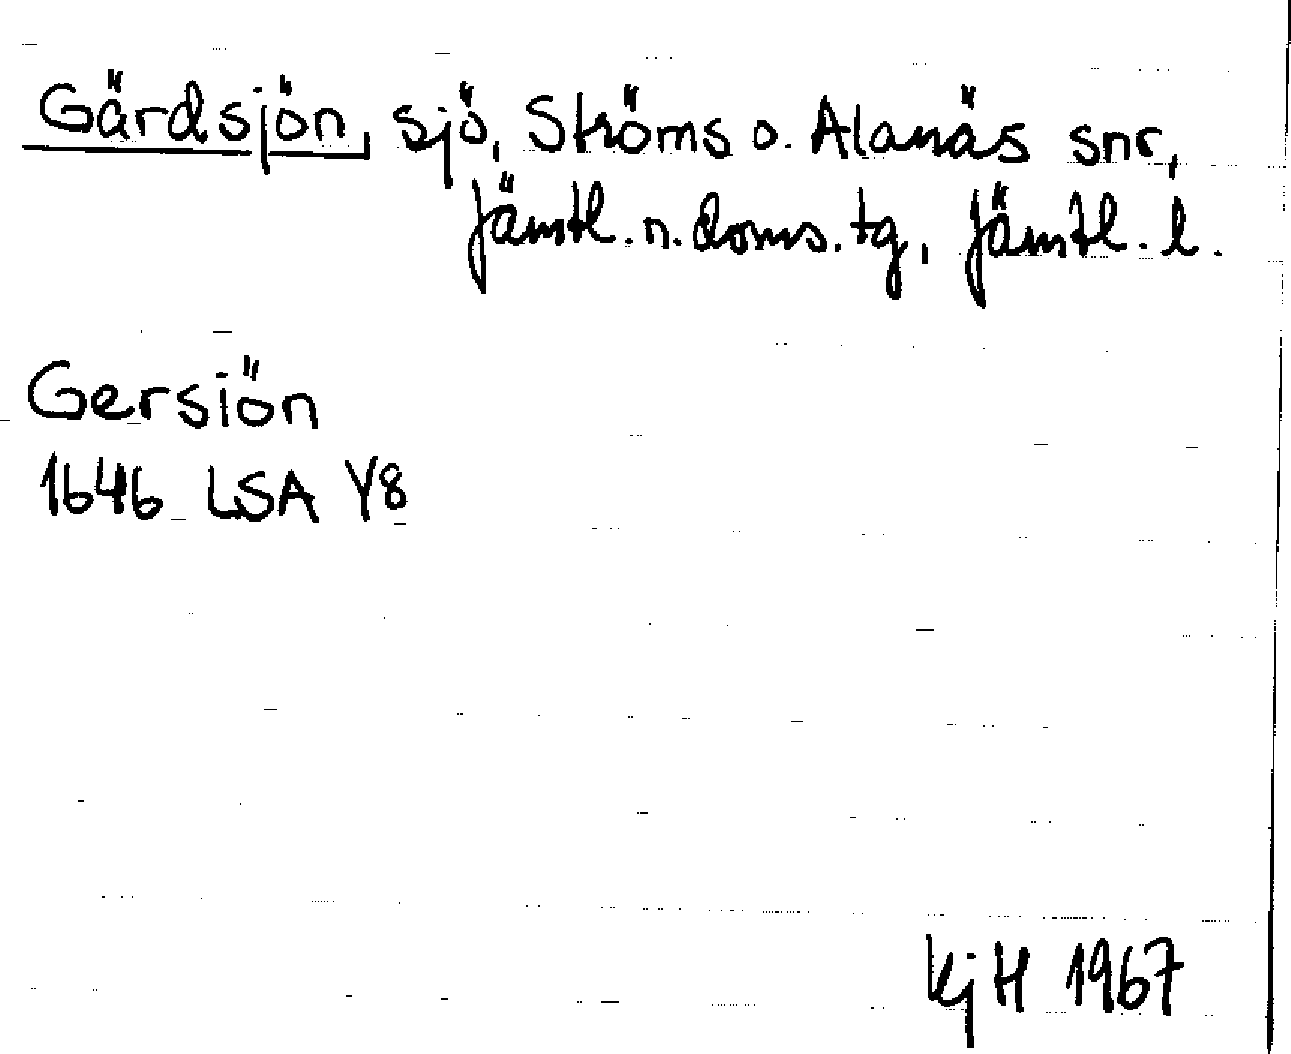 Gärdsjön, sjö, Ströms o. Alanäs snr,
Jämtl. n. doms. tg, Jämtl. l.
Gersiön
1646 LSA Y8
KjH 1967